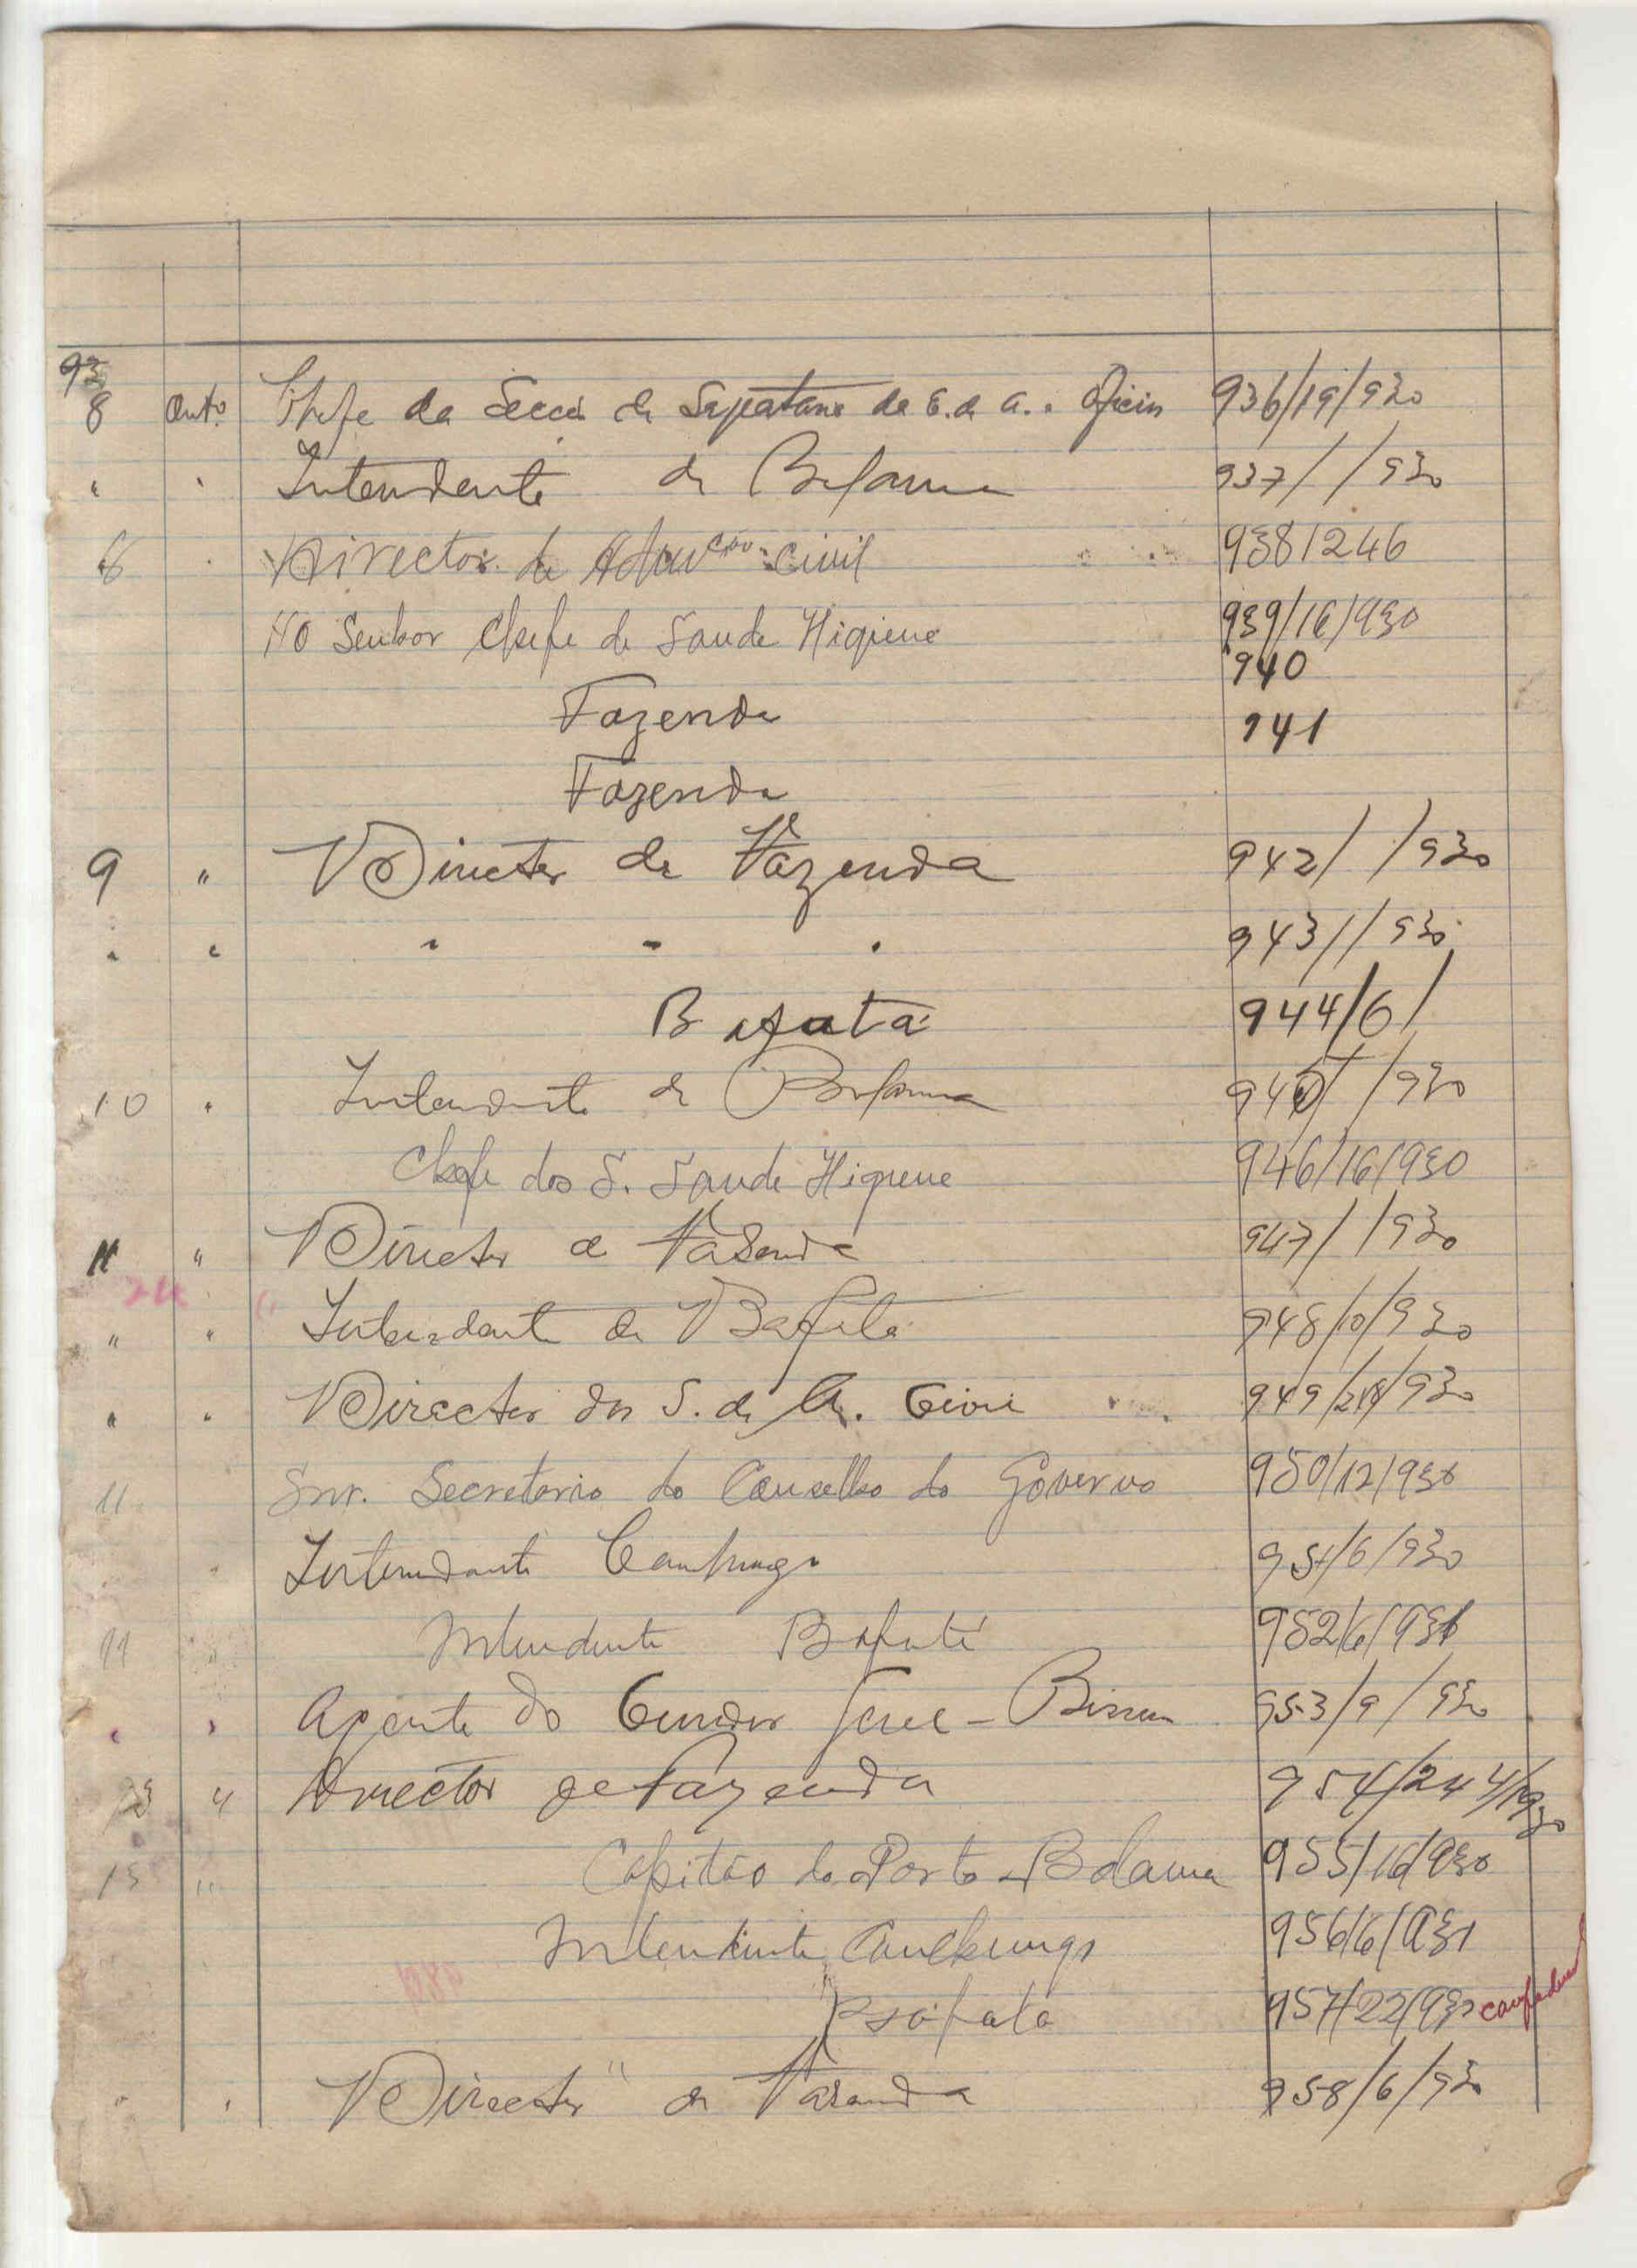 93
8 Outº Chefe da Secção de Sapataria da E. de A. e Oficios 936/19/930
" " Intendente de Bolama 937/ /930
8 " Director de Admcao civil 938/246
Ao Senhor Chefe de Saude Higiene 939/16/930
940
Fazenda 941
Fazenda
9 " Director de Fazenda 942/ /930
" " " " " 943/ /930
Bafatá 944/6/
10 " Intendente de Bolama 945/ /930
Chefe dos S. Saude Higiene 946/16/930
11 " Director de Fazenda 947/ /930
24
" " Intendente de Bafatá 948/10/930
" " Director dos S. de A. Civil 949/248/930
11 Snr. Secretario do Conselho do Governo 950/12/930
" Intendente Canchungo 951/6/930
11 " Intendente Bafatá 952/6/930
" " Agente do Curador Geral - Bissau 953/9/930
13 " Director de Fazenda 954/244/1930
15 " Capitão do Porto Bolama 955/16/930
Intendente Canchungo 956/6/931
" Bafata 957/22/930
" " Director de Fazenda 958/6/930